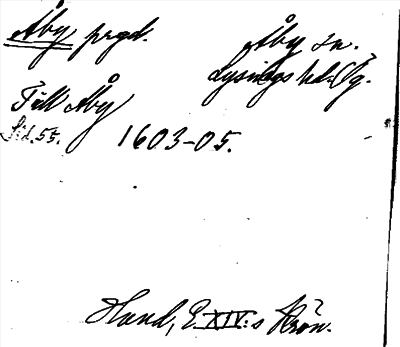 Åby prgd. Åby sn.
Lysings hd. Ög.
Till Åby
Sid. 55. 1603-05.
Hand, E. XIV:s Krön.